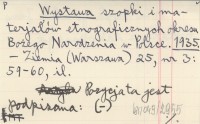 Wystawa szopki i ma-
terjałów etnograficznych okresu
Bożego Narodzenia w Polsce. 1935
- Ziemia (Warszawa) 25, nr 3:
59-60, il.
Pozycja jest
podpisana: (-)